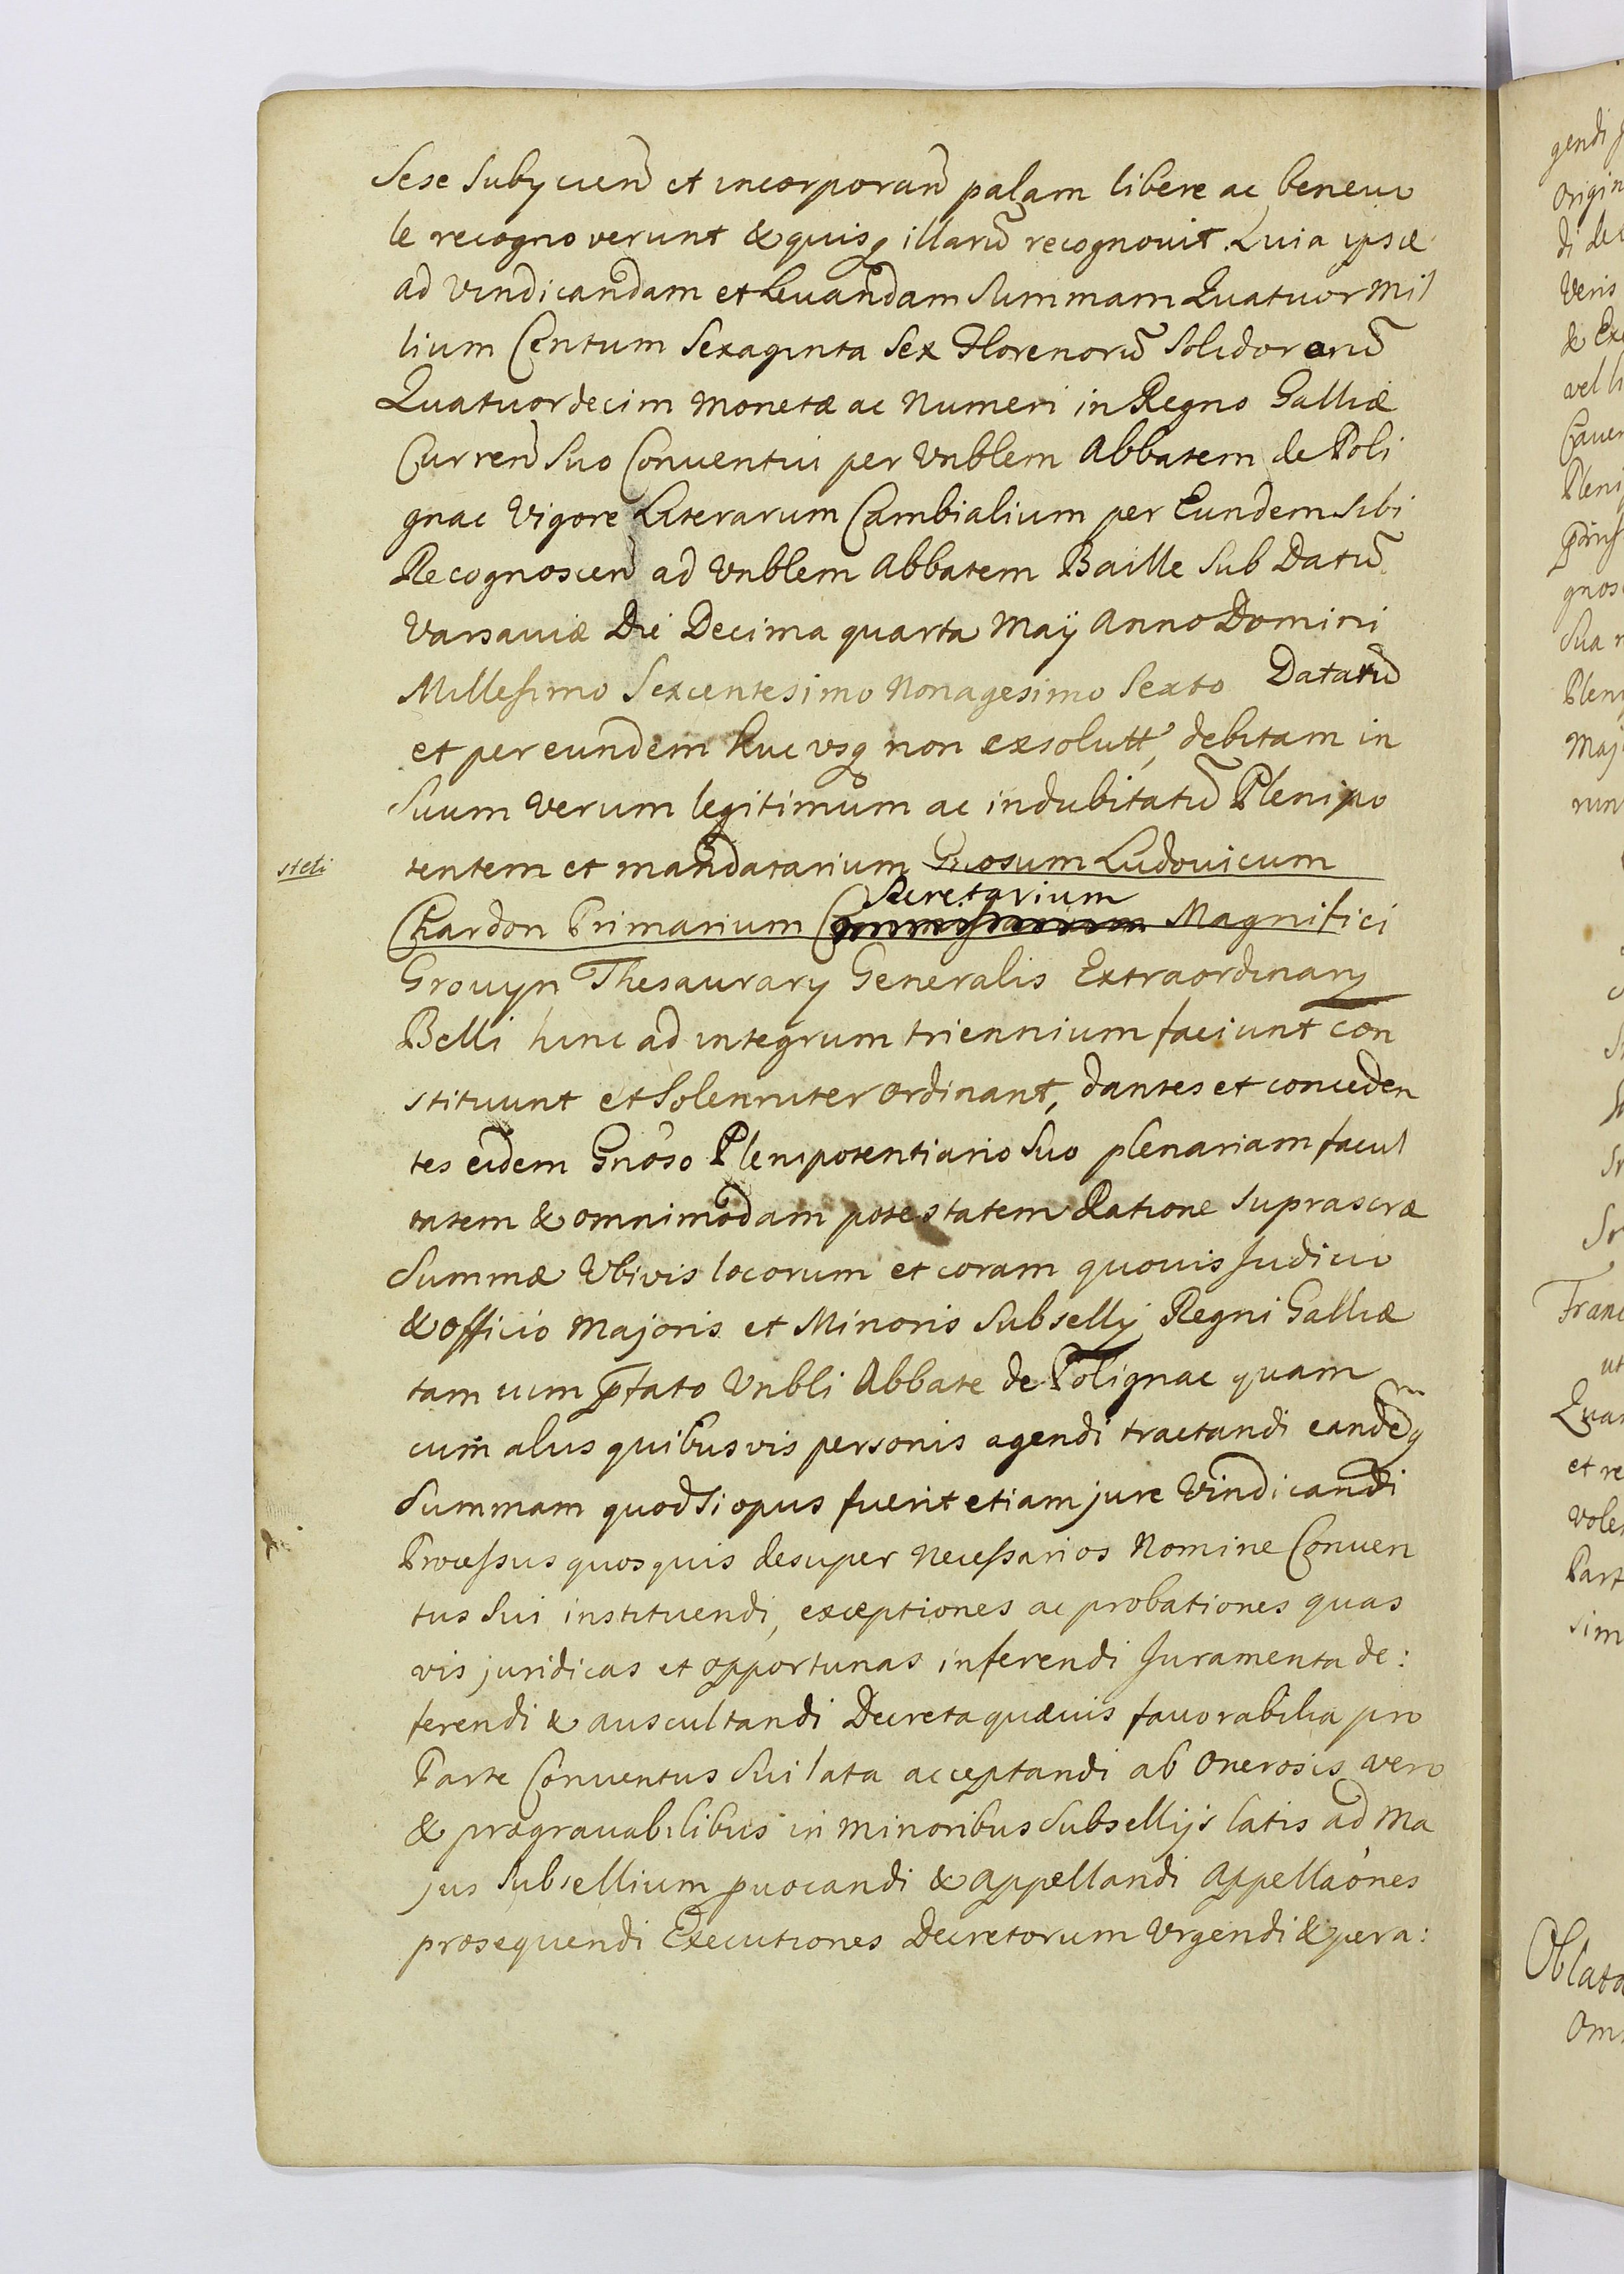 Sese Subycien͂ et incorporan͂ palam libere ac benevo
le recognoverunt & quisq illarũ recognovit. Quia ipsæ
ad vindicandam et Levandam Summam Quatuor mil
lium Centum Sexaginta Sex Florenorũ Solidorarũ
Quatuordecim monetæ ac numeri in Regno Galliæ
Curren͂ Suo Conventui per Vnblem Abbatem de Poli
gnac Vigore Literarum Cambialium per Eundem Sibi
Recognoscen͂ ad Vnblem Abbatem Baille Sub Datũ
Varsaviæ Die Decima quarta Maÿ Anno Domini
Millesimo Sexcentesimo Nonagesimo Sexto Datatũ
et per eundem huc vsq non exsolutt, debitam in
Suum verum legitimum ac indubitatũ Plenipo
steti
tentem et mandatarium Gnosum Ludovicum
Secretarium
Chardon Primarium Commissarium Magnifici
Grouyn Thesaurary Generalis Extraordinary
Belli hinc ad integrum triennium faciunt con
stituunt et Solenniter ordinant, dantes et conceden
tes eidem Gnoso Plenipotentiario Suo plenariam facul
tatem & omnimodam potestatem Ratione Suprascræ
Summæ Vbivis locorum et coram quovis Judicio
& officio Majoris et Minoris Subselly Regni Galliæ
tam cum p̱fato Vnbli Abbate de Polignac quam
cum alijs quibusvis personis agendi tractandi eandemq
Summam quodsi opus fuerit etiam jure Vindicandi
Processus quosquis desuper necessarios Nomine Conven
tus Sui instituendi, exceptiones ac probationes quas
vis juridicas et opportunas inferendi Juramenta de:
ferendi & auscultandi Decreta quævis favorabilia pro
Parte Conventus Sui lata acceptandi ab Onerosis vero
& prægravabilibus in minoribus Subsellijs latis ad Ma
jus Subsellium p̱vocandi & appellandi Appellaones
prosequendi Executiones Decretorum Vrgendi & pera: